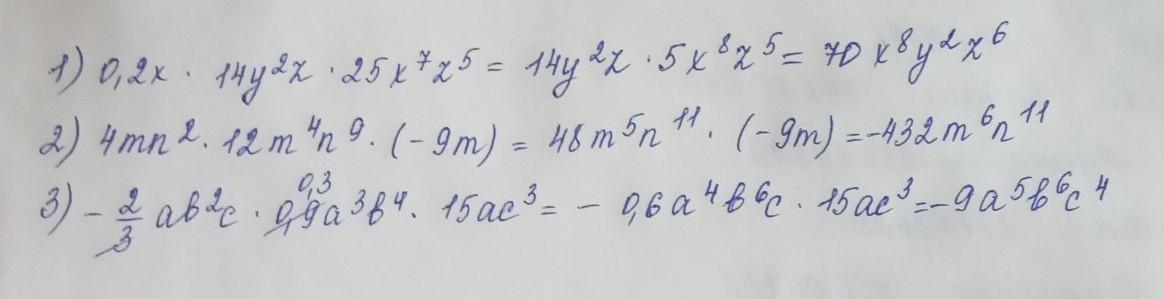 1) 0,2x · 14y²z · 25x⁷z⁵ = 14y²z · 5x⁸z⁵ = 70x⁸y²z⁶
2) 4mn² · 12m⁴n⁹ · (-9m) = 48m⁵n¹¹ · (-9m) = -432m⁶n¹¹
3) -2/3 ab²c · 0,9a³b⁴ · 15ac³ = - 0,6a⁴b⁶c · 15ac³ = -9a⁵b⁶c⁴
0,3